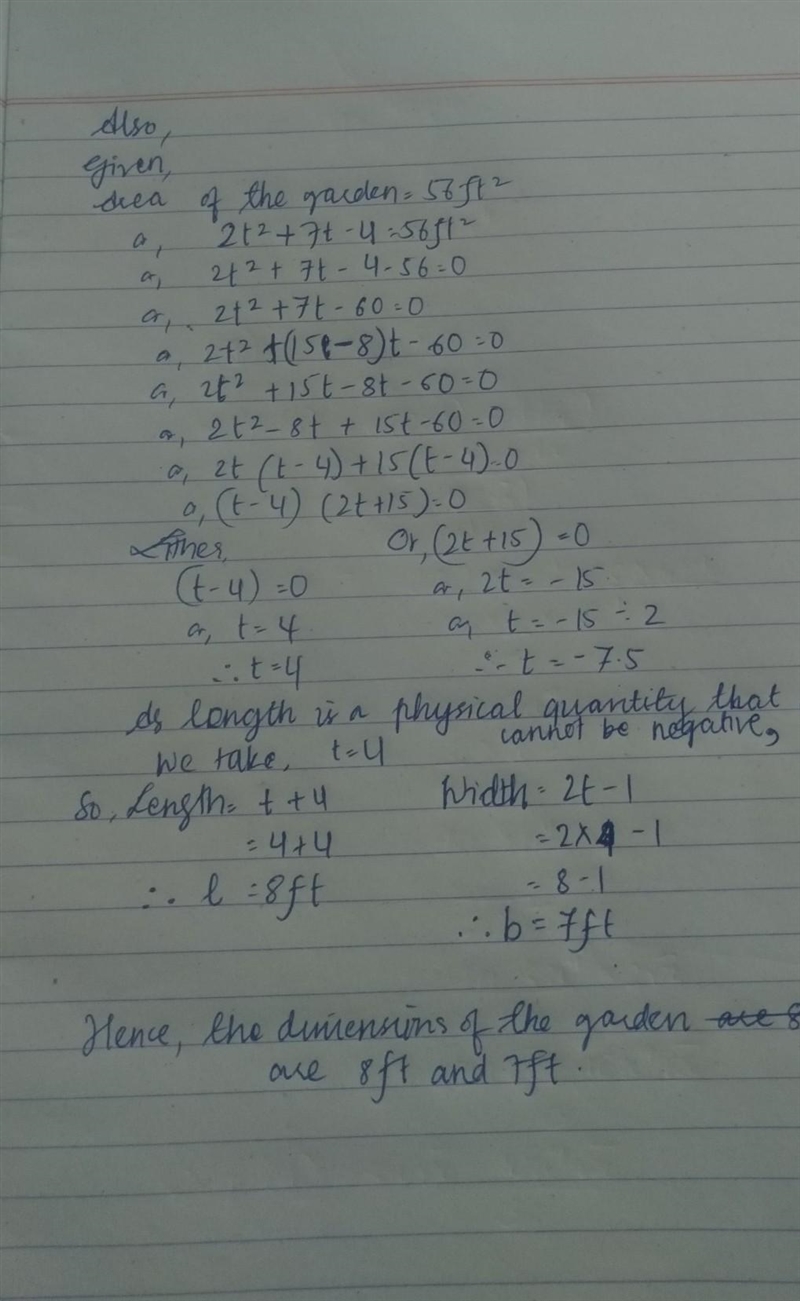 Also,
Given,
Area of the garden = 56ft²
or, 2t² + 7t - 4 = 56ft²
or, 2t² + 7t - 4 - 56 = 0
or, 2t² + 7t - 60 = 0
or, 2t² + (15t - 8)t - 60 = 0
or, 2t² + 15t - 8t - 60 = 0
or, 2t² - 8t + 15t - 60 = 0
or, 2t (t - 4) + 15 (t - 4) = 0
or, (t - 4) (2t + 15) = 0
Either, Or, (2t + 15) = 0
(t - 4) = 0 or, 2t = -15
or, t = 4 or, t = -15 ÷ 2
∴ t = 4 ∴ t = -7.5
As length is a physical quantity that
cannot be negative,
we take, t = 4
So, Length = t + 4 Width = 2t - 1
= 4 + 4 = 2 × 4 - 1
∴ l = 8ft = 8 - 1
∴ b = 7ft
Hence, the dimensions of the garden are 8
are 8ft and 7ft.